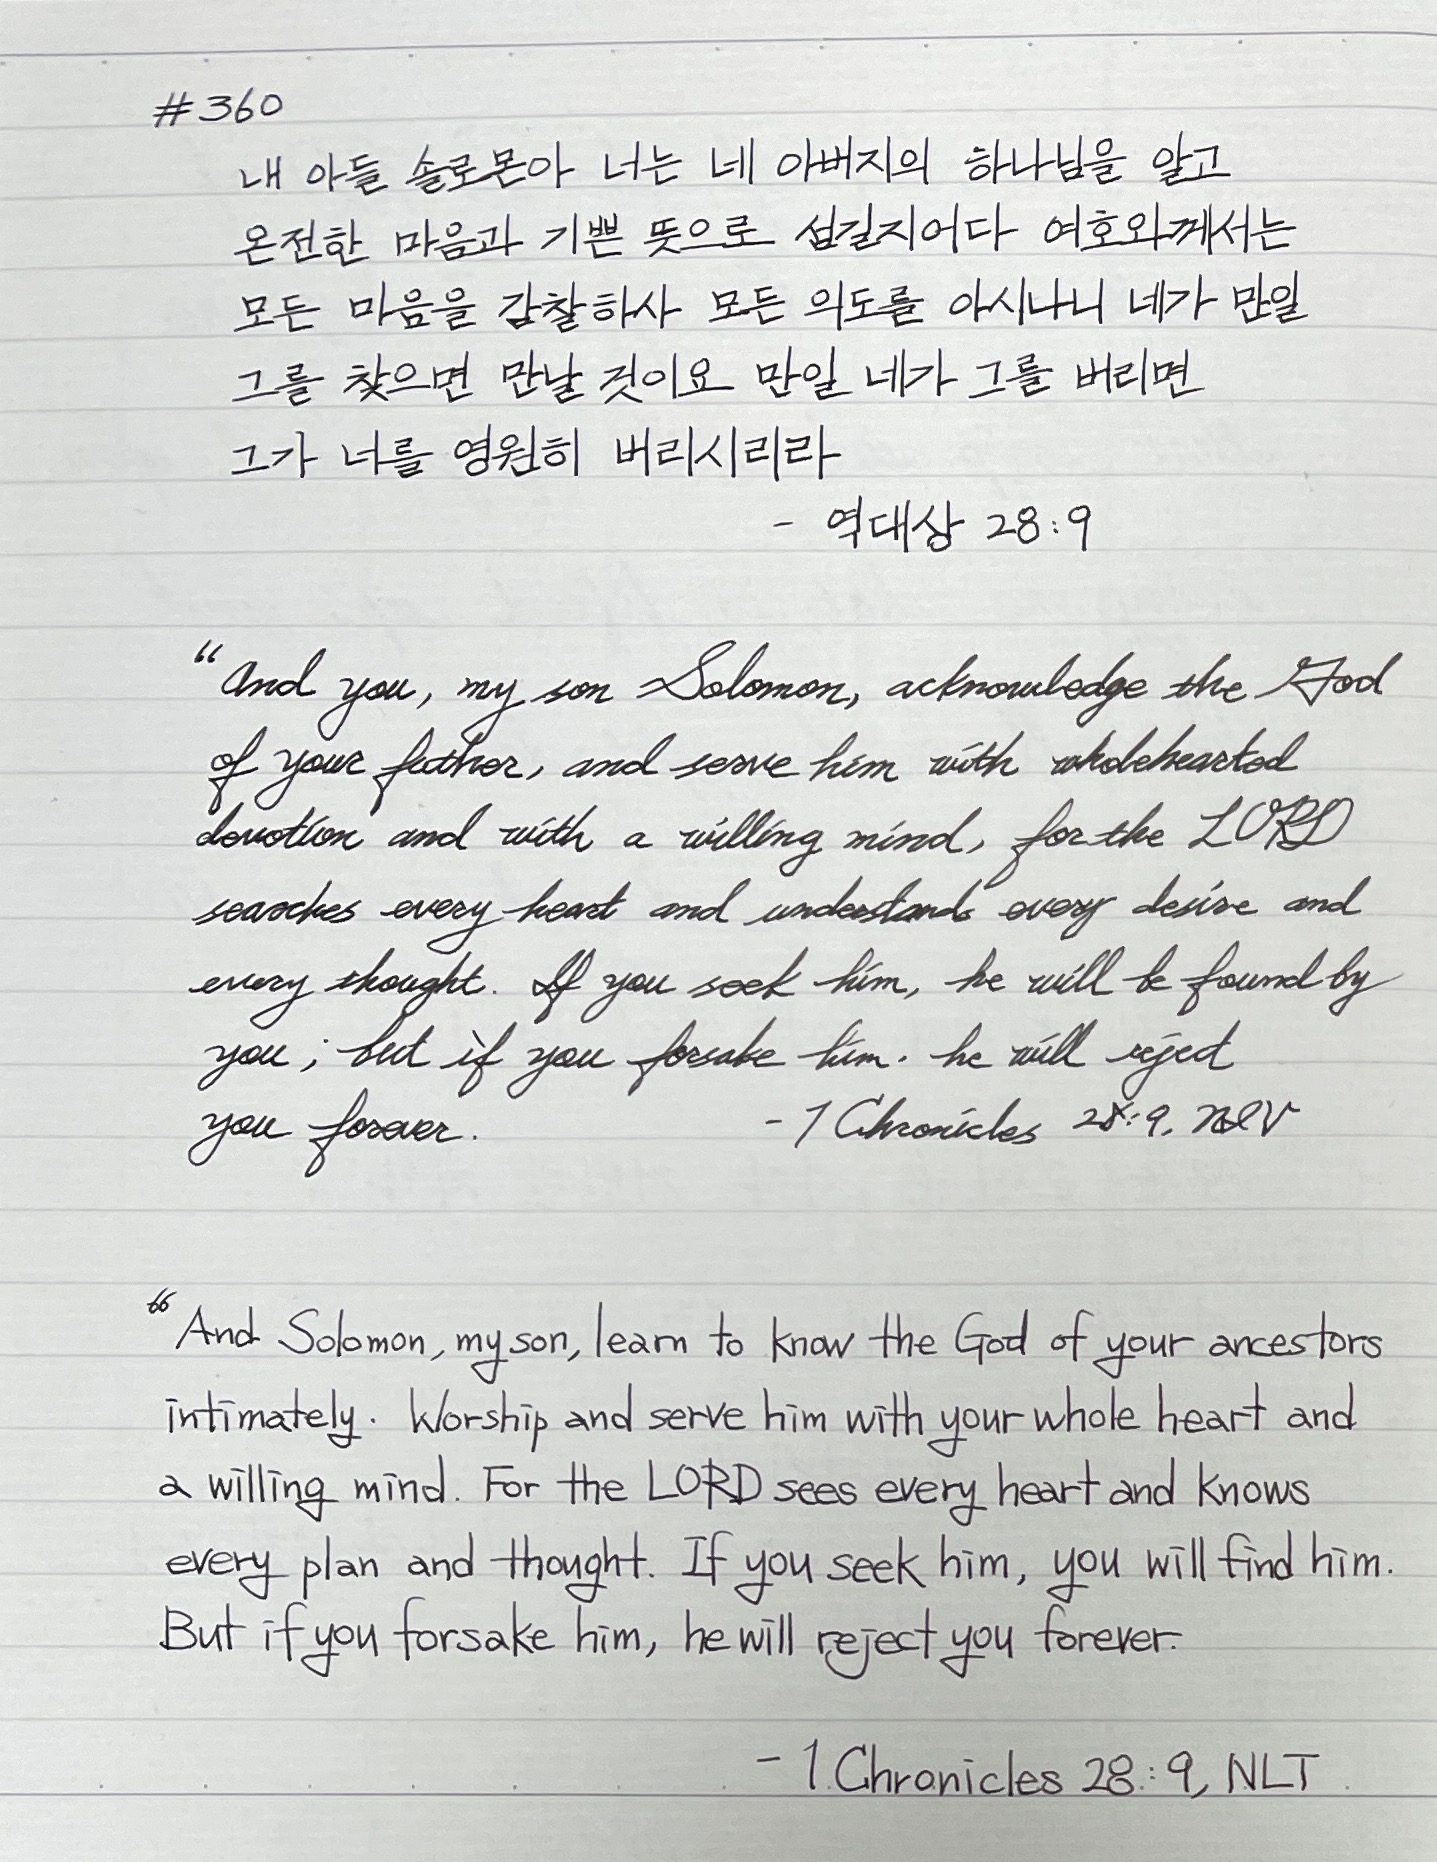 #360
내 아들 솔로몬아 너는 네 아버지의 하나님을 알고
온전한 마음과 기쁜 뜻으로 섬길지어다 여호와께서는
모든 마음을 감찰하사 모든 의도를 아시나니 네가 만일
그를 찾으면 만날 것이요 만일 네가 그를 버리면
그가 너를 영원히 버리시리라
- 역대상 28:9
“And you, my son Solomon, acknowledge the God
of your father, and serve him with wholehearted
devotion and with a willing mind, for the LORD
searches every heart and understands every desire and
every thought. If you seek him, he will be found by
you; but if you forsake him. he will reject
you forever.
- 1 Chronicles 28:9, NIV
“And Solomon, my son, learn to know the God of your ancestors
intimately. Worship and serve him with your whole heart and
a willing mind. For the LORD sees every heart and knows
every plan and thought. If you seek him, you will find him.
But if you forsake him, he will reject you forever.
- 1 Chronicles 28:9, NLT